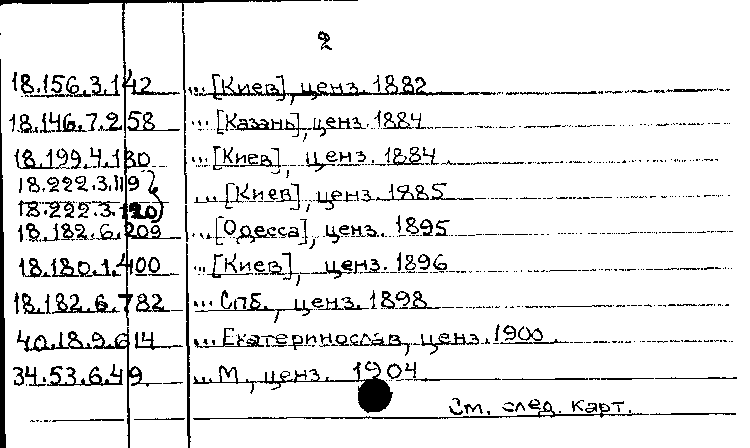 2
18.156.3.142 ...[Киев], ценз. 1882
18.146.7.258 ...[Казань], ценз. 1884
18.199.4.130 ...[Киев], ценз. 1884.
18.222.3.119
...[Киев], ценз. 1885
18.222.3.120
18.182.6.209 ...[Одесса], ценз. 1895
18.180.1.400 ...[Киев], ценз. 1896
18.182.6.782 ...Спб., ценз. 1898
40.18.9.614 ...Екатеринослав, ценз. 1900
34.53.6.49. ...М., ценз. 1904
См. след. карт.